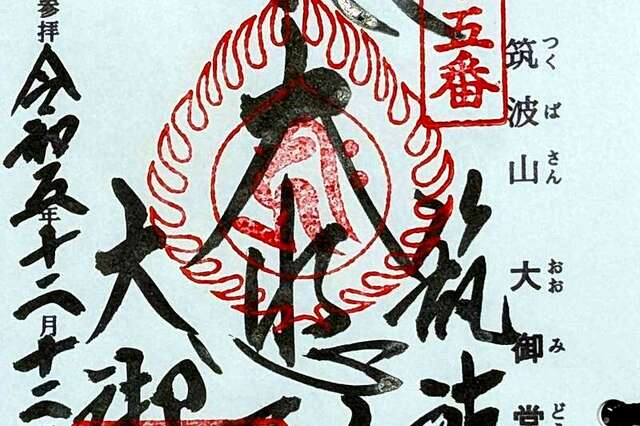 五番
筑波山 大御堂
つくばさん おおみど
筑波
大悲
大御
参拝
令和五年十二月十二